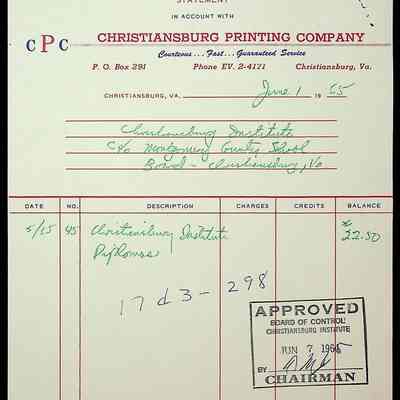 STATEMENT
IN ACCOUNT WITH
CPC CHRISTIANSBURG PRINTING COMPANY
Courteous...Fast...Guaranteed Service
P. O. Box 291 Phone EV. 2-4171 Christiansburg, Va.
CHRISTIANSBURG, VA. June 1 1965
Christiansburg Institute
C/o Montgomery County School
Board - Christiansburg, Va
DATE NO. DESCRIPTION CHARGES CREDITS BALANCE
5/15 45 Christiansburg Institute $22.50
Diplomas
17 d 3 - 298
APPROVED
BOARD OF CONTROL
CHRISTIANSBURG INSTITUTE
JUN 7 1965
BY
CHAIRMAN